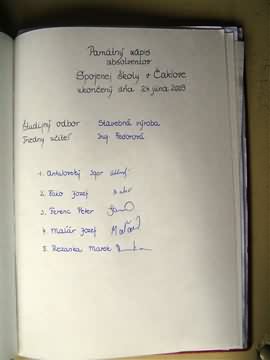 Pamätný zápis
absolventov
Spojenej školy v Čaklove
ukončený dňa 24. júna 2009
Študijný odbor Stavebná výroba
Triedny učiteľ Ing. Fedorová
1. Antolovský Igor
2. Fako Jozef
3. Ferenc Peter
4. Maľár Jozef
5. Rezanka Marek